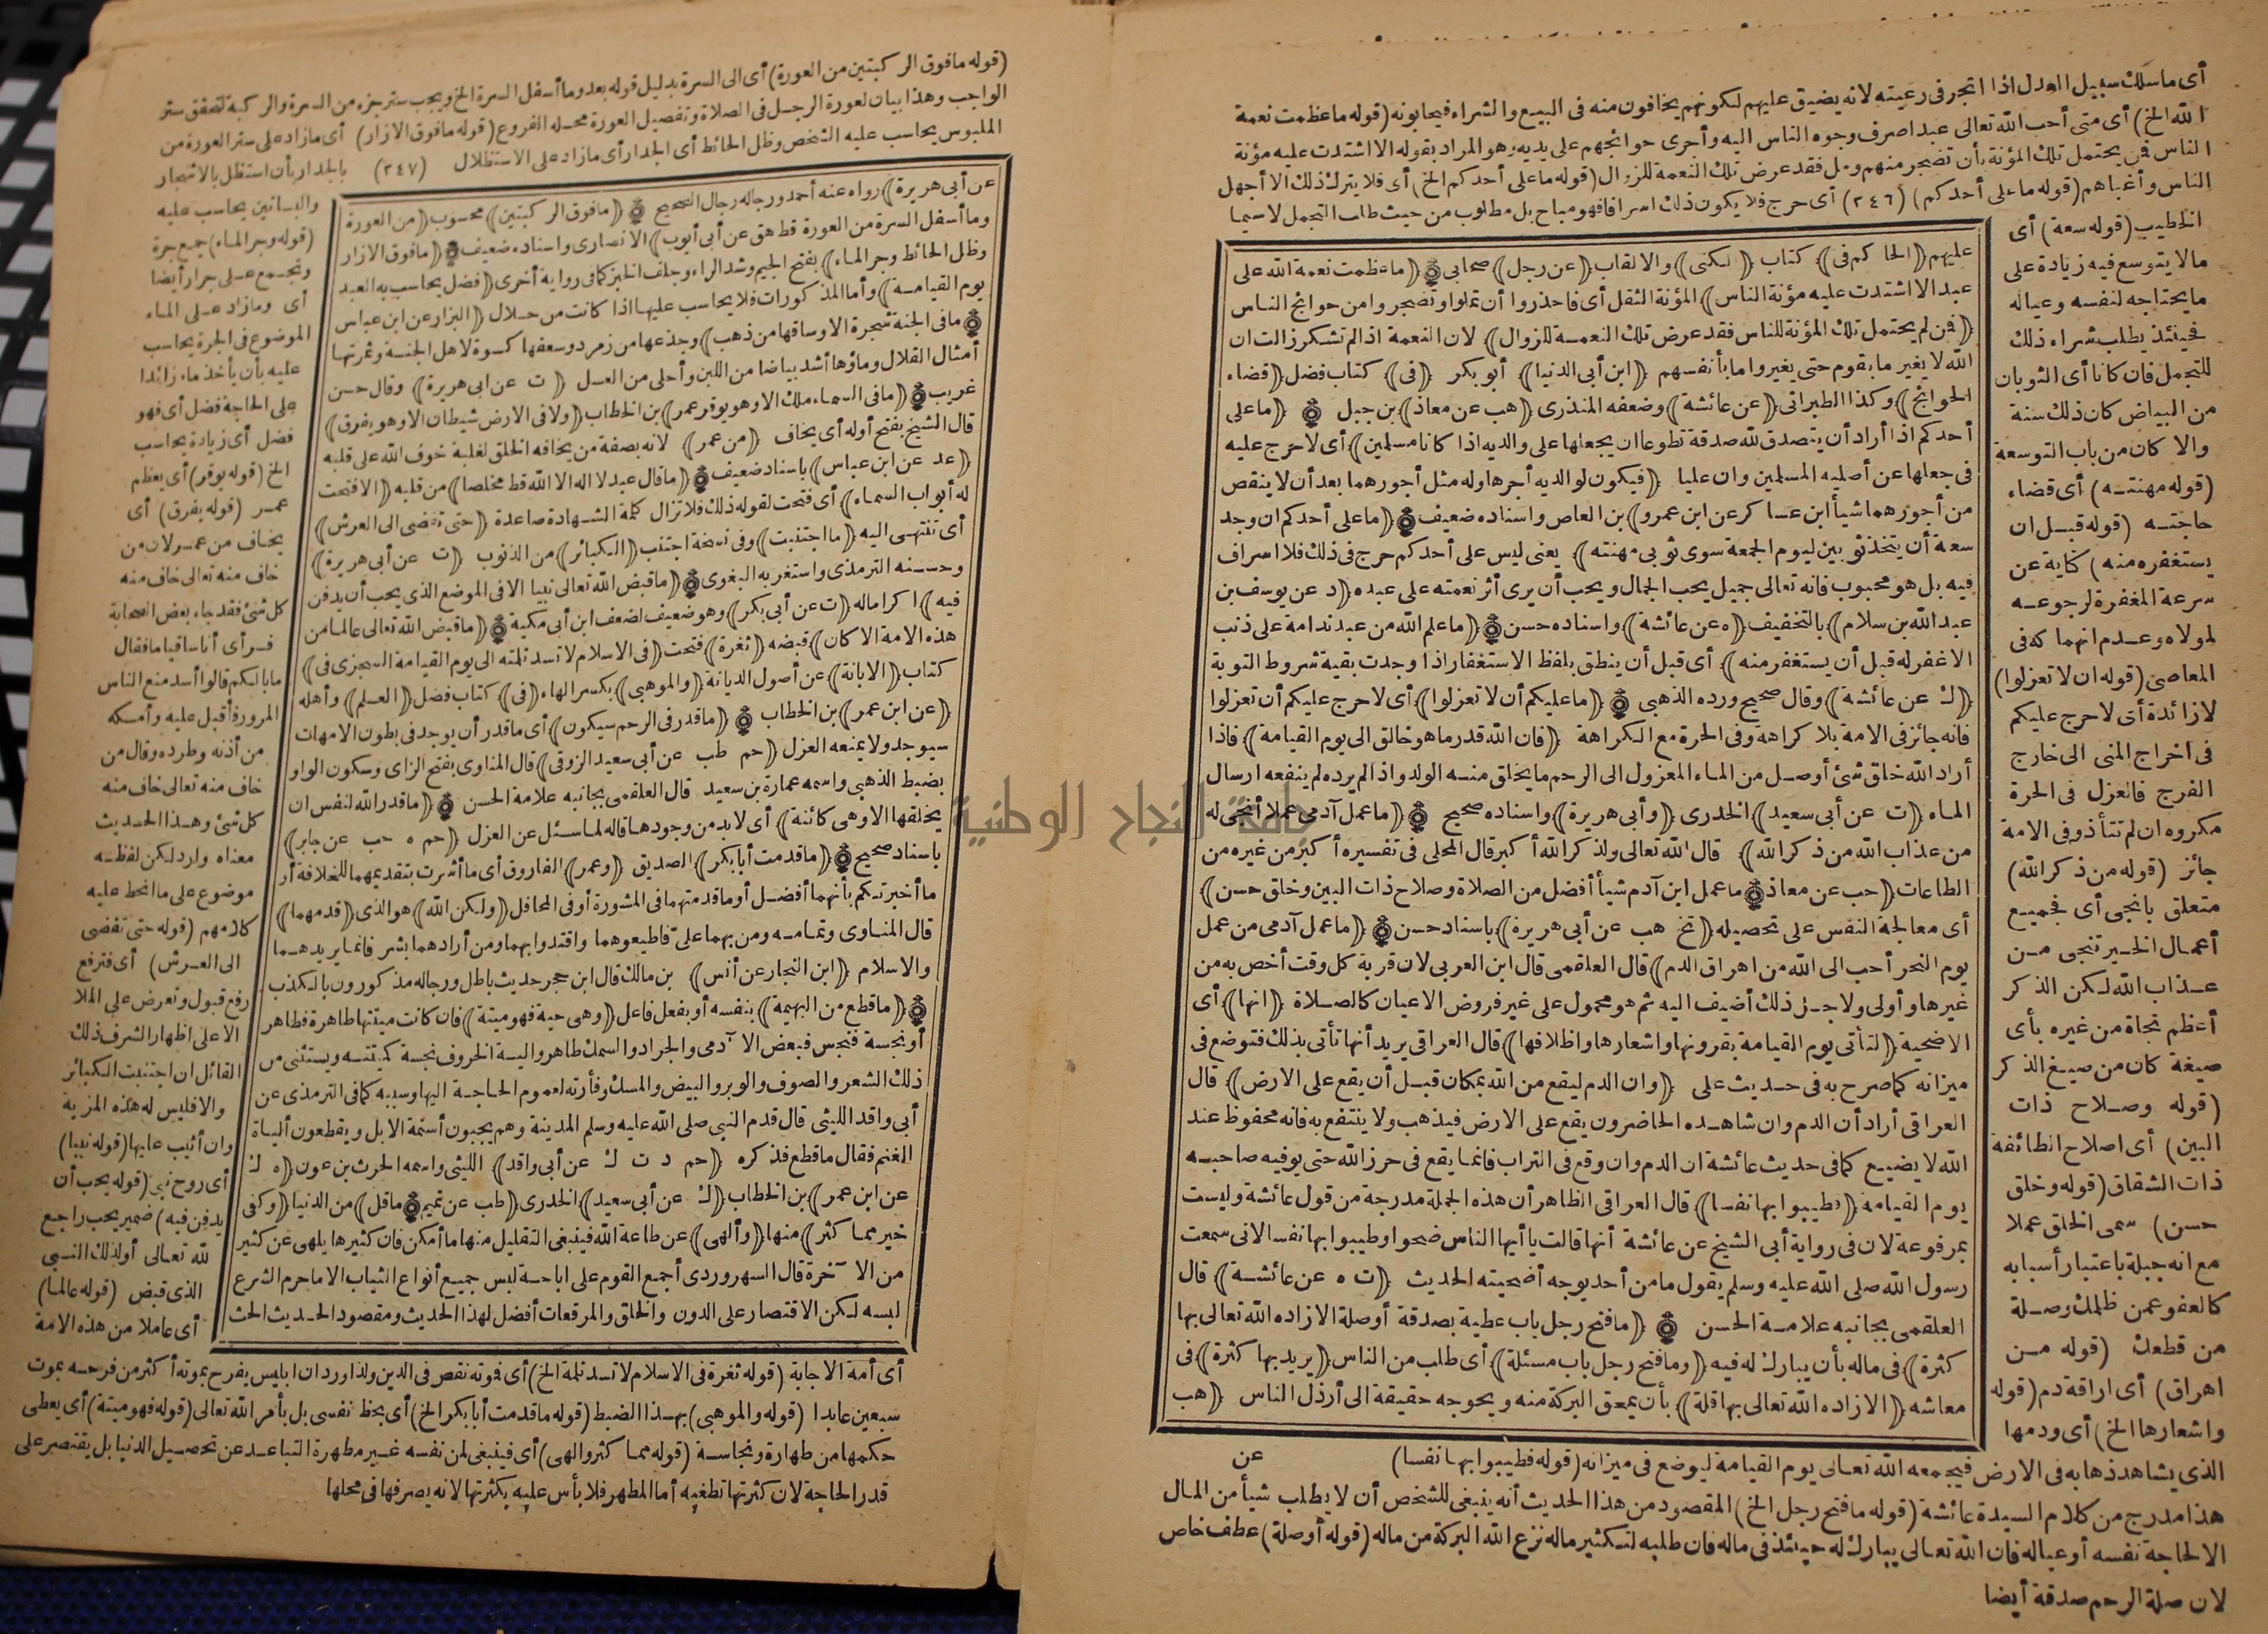 أى ماسلك سبيل العدل اذا اتجر فى رعيته لانه يضيق عليهم لكونهم يخافون منه فى البيع والشراء فيحابونه (قوله ماعظمت نعمة
الله الخ) أى متى أحب الله تعالى عبدا صرف وجوه الناس اليه وأجرى حوائجهم على يديه وهو المراد بقوله الا اشتدت عليه مؤنة
الناس فمن يحتمل تلك المؤنة بأن تضجر منهم ومل فقد عرض تلك النعمة للزوال (قوله ما على أحدكم الخ) أى فلا يترك ذلك الا أجهل
الناس وأغباهم (قوله ما على أحدكم) (٣٤٦) أى حرج فلا يكون ذلك اسرافا فهو مباح بل مطلوب من حيث طلب التجمل لاسيما
الخطيب (قوله سعة) أى
مالا يتوسع فيه زيادة على
ما يحتاجه لنفسه وعياله
فحينئذ يطلب شراء ذلك
للتجمل فان كانا أى الثوبان
من البياض كان ذلك سنة
والا كان من باب التوسعة
(قوله مهنته) أى قضاء
حاجته (قوله قبل ان
يستغفره منه) كناية عن
سرعة المغفرة لرجوعه
لمولاه وعدم انهماكه فى
المعاصى (قوله ان لا تعزلوا)
لا زائدة أى لا حرج عليكم
فى اخراج المنى الى خارج
الفرج فالعزل فى الحرة
مكروه ان لم تتأذ وفى الامة
جائز (قوله من ذكر الله)
متعلق بانجى أى فجميع
أعمال الخير تنجى من
عذاب الله لكن الذكر
أعظم نجاة من غيره بأى
صيغة كان من صيغ الذكر
(قوله وصلاح ذات
البين) أى اصلاح الطائفة
ذات الشقاق (قوله وخلق
حسن) سمى الخلق عملا
مع انه جبلة باعتبار أسبابه
كالعفو عمن ظلمك وصلة
من قطعك (قوله من
اهراق) أى اراقة دم (قوله
واشعارها الخ) أى ودمها
عليهم ﴿الحاكم فى﴾ كتاب ﴿الكنى﴾ والالقاب ﴿عن رجل﴾ صحابى ۞ ﴿ما عظمت نعمة الله على
عبد الا اشتدت عليه مؤنة الناس﴾ المؤنة الثقل أى فاحذروا أن تملوا وتضجروا من حوائج الناس
﴿فمن لم يحتمل تلك المؤنة للناس فقد عرض تلك النعمة للزوال﴾ لان النعمة اذا لم تشكر زالت ان
الله لا يغير ما بقوم حتى يغيروا ما بأنفسهم ﴿ابن أبى الدنيا﴾ أبو بكر ﴿فى﴾ كتاب فضل ﴿قضاء
الحوائج﴾ وكذا الطبرانى ﴿عن عائشة﴾ وضعفه المنذرى ﴿هب عن معاذ﴾ بن جبل ۞ ﴿ما على
أحدكم اذا أراد أن يتصدق لله صدقة تطوعا ان يجعلها على والديه اذا كانا مسلمين﴾ أى لا حرج عليه
فى جعلها عن أصليه المسلمين وان عليا ﴿فيكون لوالديه أجرها وله مثل أجورهما بعد أن لا ينقص
من أجورهما شيأ ابن عساكر عن ابن عمرو﴾ بن العاص واسناده ضعيف ۞ ﴿ما على أحدكم ان وجد
سعة أن يتخذ ثوبين ليوم الجمعة سوى ثوبى مهنته﴾ يعنى ليس على أحدكم حرج فى ذلك فلا اسراف
فيه بل هو محبوب فانه تعالى جميل يحب الجمال ويحب أن يرى أثر نعمته على عبده ﴿د عن يوسف بن
عبد الله بن سلام﴾ بالتخفيف ﴿ه عن عائشة﴾ واسناده حسن ۞ ﴿ما علم الله من عبد ندامة على ذنب
الا غفر له قبل أن يستغفر منه﴾ أى قبل أن ينطق بلفظ الاستغفار اذا وجدت بقية شروط التوبة
﴿ك عن عائشة﴾ وقال صحيح ورده الذهبى ۞ ﴿ما عليكم أن لا تعزلوا﴾ أى لا حرج عليكم أن تعزلوا
فانه جائز فى الامة بلا كراهة وفى الحرة مع الكراهة ﴿فان الله قدر ما هو خالق الى يوم القيامة﴾ فاذا
أراد الله خلق شئ أوصل من الماء المعزول الى الرحم ما يخلق منه الولد واذا لم يرده لم ينفعه ارسال
الماء ﴿ت عن أبى سعيد﴾ الخدرى ﴿وأبى هريرة﴾ واسناده صحيح ۞ ﴿ما عمل آدمى عملا أنجى له
من عذاب الله من ذكر الله﴾ قال الله تعالى ولذكر الله أكبر قال المحلى فى تفسيره أكبر من غيره من
الطاعات ﴿حب عن معاذ ۞ ما عمل ابن آدم شيأ أفضل من الصلاة وصلاح ذات البين وخلق حسن﴾
أى معالجة النفس على تحصيله ﴿تخ هب عن أبى هريرة﴾ باسناد حسن ۞ ﴿ما عمل آدمى من عمل
يوم النحر أحب الى الله من اهراق الدم﴾ قال العلقمى قال ابن العربى لان قربة كل وقت أخص به من
غيرها وأولى ولاجل ذلك أضيف اليه ثم هو محمول على غير فروض الاعيان كالصلاة ﴿انها﴾ أى
الاضحية ﴿لتأتى يوم القيامة بقرونها واشعارها واظلافها﴾ قال العراقى يريد أنها تأتى بذلك فتوضع فى
ميزانه كما صرح به فى حديث على ﴿وان الدم ليقع من الله بمكان قبل أن يقع على الارض﴾ قال
العراقى أراد أن الدم وان شاهده الحاضرون يقع على الارض فيذهب ولا ينتفع به فانه محفوظ عند
الله لا يضيع كما فى حديث عائشة ان الدم وان وقع فى التراب فانما يقع فى حرز الله حتى يوفيه صاحبه
يوم القيامة ﴿فطيبوا بها نفسا﴾ قال العراقى الظاهر أن هذه الجملة مدرجة من قول عائشة وليست
بمرفوعة لان فى رواية أبى الشيخ عن عائشة أنها قالت يا أيها الناس ضحوا وطيبوا بها نفسا لانى سمعت
رسول الله صلى الله عليه وسلم يقول ما من أحد يوجه أضحيته الحديث ﴿ت ه عن عائشة﴾ قال
العلقمى بجانبه علامة الحسن ۞ ﴿ما فتح رجل باب عطية بصدقة أو صلة الا زاده الله تعالى بها
كثرة﴾ فى ماله بأن يبارك له فيه ﴿وما فتح رجل باب مسئلة﴾ أى طلب من الناس ﴿يريد بها كثرة﴾ فى
معاشه ﴿الا زاده الله تعالى بها قلة﴾ بأن يمحق البركة منه ويحوجه حقيقة الى أرذل الناس ﴿هب
عن
الذى يشاهد ذهابه فى الارض فيجمعه الله تعالى يوم القيامة ليوضع فى ميزانه (قوله فطيبوا بها نفسا)
هذا مدرج من كلام السيدة عائشة (قوله ما فتح رجل الخ) المقصود من هذا الحديث أنه ينبغى للشخص أن لا يطلب شيأ من المال
الا لحاجة نفسه أو عياله فان الله تعالى يبارك له حينئذ فى ماله فان طلبه لتكثير ماله نزع الله البركة من ماله (قوله أو صلة) عطف خاص
لان صلة الرحم صدقة أيضا
(قوله ما فوق الركبتين من العورة) أى الى السرة بدليل قوله بعد وما أسفل السرة الخ ويجب ستر جزء من السرة والركبة لتحقق ستر
الواجب وهذا بيان لعورة الرجل فى الصلاة وتفصيل العورة محله الفروع (قوله ما فوق الازار) أى ما زاد على ستر العورة من
الملبوس يحاسب عليه الشخص وظل الحائط أى الجدار أى ما زاد على الاستظلال (٣٤٧) بالجدار بأن استظل بالاشجار
والبساتين يحاسب عليه
(قوله وجر الماء) جمع جرة
وتجمع على جرار أيضا
أى وما زاد على الماء
الموضوع فى الجرة يحاسب
عليه بأن يأخذ ماء زائدا
على الحاجة فضل أى فهو
فضل أى زيادة يحاسب
الخ (قوله يوقر) أى يعظم
عمر (قوله يفرق) أى
يخاف من عمر لان من
خاف منه تعالى خاف منه
كل شئ فقد جاء بعض الصحابة
فرأى أناسا قياما فقال
ما بالكم قالوا أسد منع الناس
المرور فأقبل عليه وأمسكه
من أذنه وطرده وقال من
خاف منه تعالى خاف منه
كل شئ وهذا الحديث
معناه وارد لكن لفظه
موضوع على ما انحط عليه
كلامهم (قوله حتى تفضى
الى العرش) أى فترفع
رفع قبول وتعرض على الملا
الاعلى اظهار الشرف ذلك
القائل ان اجتنبت الكبائر
والا فليس له هذه المزية
وان أثيب عليها (قوله نبيا)
أى روح نبى (قوله يحب أن
يدفن فيه) ضمير يحب راجع
لله تعالى أو لذلك النبى
الذى قبض (قوله عالما)
أى عاملا من هذه الامة
عن أبى هريرة﴾ رواه عنه أحمد ورجاله رجال الصحيح ۞ ﴿ما فوق الركبتين﴾ محسوب ﴿من العورة
وما أسفل السرة من العورة قط هق عن أبى أيوب﴾ الانصارى واسناده ضعيف ۞ ﴿ما فوق الازار
وظل الحائط وجر الماء﴾ بفتح الجيم وشد الراء وجلف الخبز كما فى رواية أخرى ﴿فضل يحاسب به العبد
يوم القيامة﴾ وأما المذكورات فلا يحاسب عليها اذا كانت من حلال ﴿البزار عن ابن عباس
۞ ما فى الجنة شجرة الا وساقها من ذهب﴾ وجذعها من زمرد وسعفها كسوة لاهل الجنة وثمرتها
أمثال القلال وماؤها أشد بياضا من اللبن وأحلى من العسل ﴿ت عن ابى هريرة﴾ وقال حسن
غريب ۞ ﴿ما فى السماء ملك الا وهو يوقر عمر﴾ بن الخطاب ﴿ولا فى الارض شيطان الا وهو يفرق﴾
قال الشيخ بفتح أوله أى يخاف ﴿من عمر﴾ لانه بصفة من يخافه الخلق لغلبة خوف الله على قلبه
﴿عد عن ابن عباس﴾ باسناد ضعيف ۞ ﴿ما قال عبد لا اله الا الله قط مخلصا﴾ من قلبه ﴿الا فتحت
له أبواب السماء﴾ أى فتحت لقوله ذلك فلا تزال كلمة الشهادة صاعدة ﴿حتى تفضى الى العرش﴾
أى تنتهى اليه ﴿ما اجتنبت﴾ وفى نسخة اجتنب ﴿الكبائر﴾ من الذنوب ﴿ت عن أبى هريرة﴾
وحسنه الترمذى واستغربه البغوى ۞ ﴿ما قبض الله تعالى نبيا الا فى الموضع الذى يحب أن يدفن
فيه﴾ اكراما له ﴿ت عن أبى بكر﴾ وهو ضعيف لضعف ابن أبى مكية ۞ ﴿ما قبض الله تعالى عالما من
هذه الامة الا كان﴾ قبضه ﴿ثغرة﴾ فتحت ﴿فى الاسلام لا تسد ثلمته الى يوم القيامة السجزى فى﴾
كتاب ﴿الابانة﴾ عن أصول الديانة ﴿والموهبى﴾ بكسر الهاء ﴿فى﴾ كتاب فضل ﴿العلم﴾ وأهله
﴿عن ابن عمر﴾ بن الخطاب ۞ ﴿ما قدر فى الرحم سيكون﴾ أى ما قدر أن يوجد فى بطون الامهات
سيوجد ولا يمنعه العزل ﴿حم طب عن أبى سعيد الزوقى﴾ قال المناوى بفتح الزاى وسكون الواو
بضبط الذهبى واسمه عمارة بن سعيد قال العلقمى بجانبه علامة الحسن ۞ ﴿ما قدر الله لنفس ان
يخلقها الا وهى كائنة﴾ أى لا بد من وجودها قاله لما سئل عن العزل ﴿حم ه حب عن جابر﴾
باسناد صحيح ۞ ﴿ما قدمت أبا بكر﴾ الصديق ﴿وعمر﴾ الفاروق أى ما أشرت بتقديمهما للخلافة أو
ما أخبرتكم بأنهما أفضل أو ما قدمتهما فى المشورة أو فى المحافل ﴿ولكن الله﴾ هو الذى ﴿قدمهما﴾
قال المناوى وتمامه ومن بهما على فاطيعوهما واقتدوا بهما ومن أرادهما بشر فانما يريدهما
والاسلام ﴿ابن النجار عن أنس﴾ بن مالك قال ابن حجر حديث باطل ورجاله مذكورون بالكذب
۞ ﴿ما قطع من البهيمة﴾ بنفسه أو بفعل فاعل ﴿وهى حية فهو ميتة﴾ فان كانت ميتتها طاهرة فطاهر
أو نجسة فنجس فبعض الآدمى والجراد والسمك طاهر والية الخروف نجسة كميتته ويستثنى من
ذلك الشعر والصوف والوبر والبيض والمسك وفأرته لعموم الحاجة اليها وسببه كما فى الترمذى عن
أبى واقد الليثى قال قدم النبى صلى الله عليه وسلم المدينة وهم يجبون أسنمة الابل ويقطعون أليات
الغنم فقال ما قطع فذكره ﴿حم د ت ك عن أبى واقد﴾ الليثى واسمه الحرث بن عون ﴿ه ك
عن ابن عمر﴾ بن الخطاب ﴿ك عن أبى سعيد﴾ الخدرى ﴿طب عن تميم ۞ ما قل﴾ من الدنيا ﴿وكفى
خير مما كثر﴾ منها ﴿وألهى﴾ عن طاعة الله فينبغى التقليل منها ما أمكن فان كثيرها يلهى عن كثير
من الآخرة قال السهروردى أجمع القوم على اباحة لبس جميع أنواع الثياب الا ما حرم الشرع
لبسه لكن الاقتصار على الدون والخلق والمرقعات أفضل لهذا الحديث ومقصود الحديث الحث
أى أمة الاجابة (قوله ثغرة فى الاسلام لا تسد ثلمة الخ) أى فموته نقص فى الدين ولذا ورد ان ابليس يفرح بموته أكثر من فرحه بموت
سبعين عابدا (قوله والموهبى) بهذا الضبط (قوله ما قدمت أبا بكر الخ) أى بحظ نفسى بل بأمر الله تعالى (قوله فهو ميتة) أى يعطى
حكمها من طهارة ونجاسة (قوله مما كثر والهى) أى فينبغى لمن نفسه غير مطهرة التباعد عن تحصيل الدنيا بل يقتصر على
قدر الحاجة لان كثرتها تطغيه أما المطهر فلا بأس عليه بكثرتها لانه يصرفها فى محلها
جامعة النجاح الوطنية